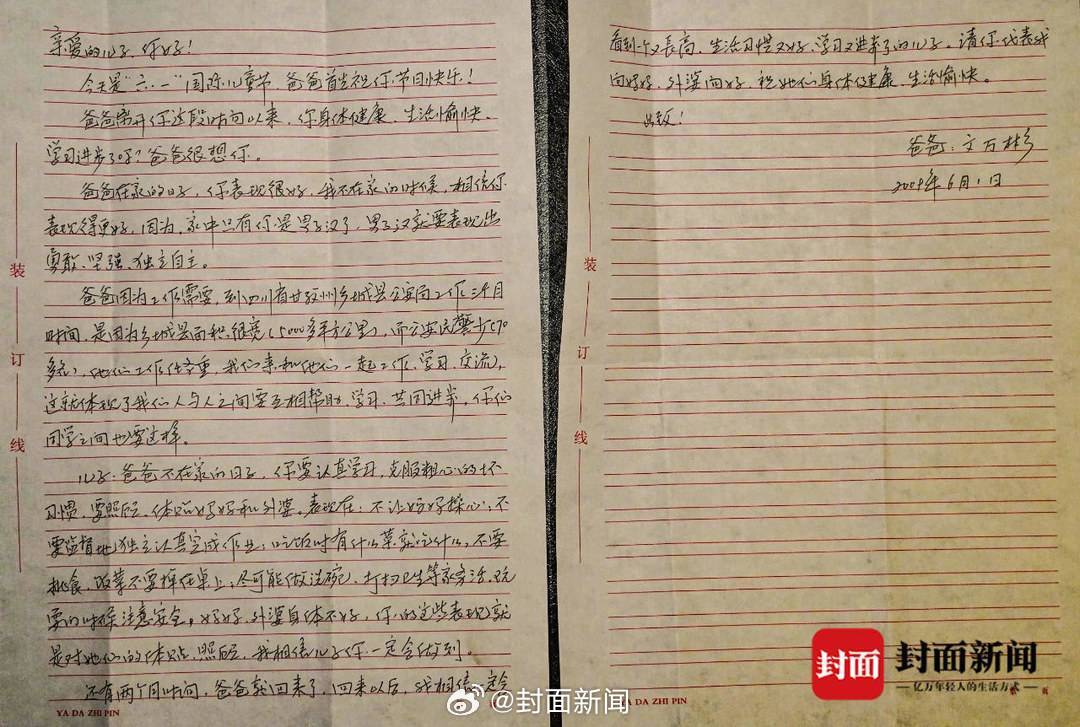 亲爱的儿子，你好！
今天是“六·一”国际儿童节，爸爸首先祝你节日快乐！
爸爸离开你这段时间以来，你身体健康、生活愉快、
学习进步了吗？爸爸很想你。
爸爸在家的日子，你表现很好，我不在家的时候，相信你
表现得更好，因为，家中只有你是男子汉了，男子汉就要表现出
勇敢、坚强、独立自主。
爸爸因为工作需要，到四川省甘孜州乡城县公安局工作三个月
时间，是因为乡城县面积很宽（5000多平方公里），而公安民警少（70
多名），他们工作任务重，我们来和他们一起工作、学习、交流，
这就体现了我们人与人之间要互相帮助、学习、共同进步，你们
同学之间也要这样。
儿子，爸爸不在家的日子，你要认真学习，克服粗心的坏
习惯，要照顾、体贴好妈妈和外婆。表现在：不让妈妈操心；不
要监督地独立认真完成作业；吃饭时有什么菜就吃什么，不要
挑食，饭菜不要掉在桌上；尽可能做洗碗、打扫卫生等家务活，玩
耍的时候注意安全。妈妈、外婆身体不好，你的这些表现就
是对她们的体贴、照顾，我相信儿子你一定会做到。
还有两个月时间，爸爸就回来了，回来以后，我相信一定会
YA DA ZHI PIN
装
订
线
看到一个又长高、生活习惯又好、学习又进步了的儿子。请你代表我
向妈妈、外婆问好，祝她们身体健康、生活愉快。
此致！
爸爸：文万彬
2009年6月1日
装
订
线
YA DA ZHI PIN
封面
封面新闻
亿万年轻人的生活方式
@封面新闻